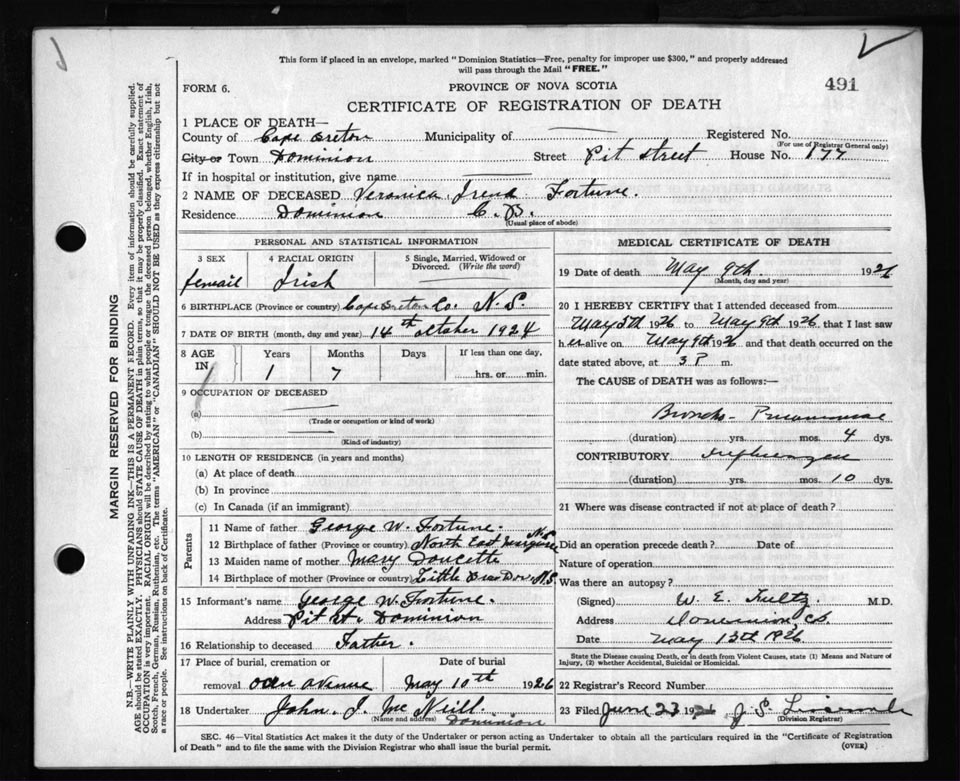 This form if placed in an envelope, marked "Dominion Statistics—Free, penalty for improper use $300," and properly addressed
will pass through the Mail "FREE."
491
FORM 6.
PROVINCE OF NOVA SCOTIA
CERTIFICATE OF REGISTRATION OF DEATH
MARGIN RESERVED FOR BINDING
N.B.—WRITE PLAINLY WITH UNFADING INK—THIS IS A PERMANENT RECORD. Every item of information should be carefully supplied.
AGE should be stated EXACTLY. PHYSICIANS should STATE CAUSE OF DEATH in plain terms, so that it may be properly classified. Exact statement of
OCCUPATION is very important. RACIAL ORIGIN will be described by stating to what people or tongue the deceased person belonged, whether English, Irish,
Scotch, French, German, Russian, Ruthenian, etc. The terms "AMERICAN" or "CANADIAN" SHOULD NOT BE USED as they express citizenship but not
a race or people. See instructions on back of Certificate.
1 PLACE OF DEATH—
County of Cape Breton Municipality of Registered No.
(For use of Registrar General only)
City or Town Dominion Street Pit Street House No. 177
If in hospital or institution, give name
2 NAME OF DECEASED Veronica Irena Fortune.
Residence Dominion C. B.
(Usual place of abode)
PERSONAL AND STATISTICAL INFORMATION
3 SEX 4 RACIAL ORIGIN 5 Single, Married, Widowed or
Divorced. (Write the word)
femail Irish
6 BIRTHPLACE (Province or country) Cape Breton Co. N. S.
7 DATE OF BIRTH (month, day and year) 14th october 1924
8 AGE Years Months Days If less than one day,
IN 1 7 hrs. or min.
9 OCCUPATION OF DECEASED
(a)
(Trade or occupation or kind of work)
(b)
(Kind of industry)
10 LENGTH OF RESIDENCE (in years and months)
(a) At place of death
(b) In province
(c) In Canada (if an immigrant)
Parents
11 Name of father George W. Fortune.
12 Birthplace of father (Province or country) North East Margaree N.S.
13 Maiden name of mother Mary Doucette
14 Birthplace of mother (Province or country) Little Bras Dor N.S.
15 Informant's name George W. Fortune.
Address Pit St. Dominion
16 Relationship to deceased Father.
17 Place of burial, cremation or Date of burial
removal avenue May 10th 1926
18 Undertaker John. J. Mc Neill.
(Name and address) Dominion
MEDICAL CERTIFICATE OF DEATH
19 Date of death May 9th. 1926
(Month, day and year)
20 I HEREBY CERTIFY that I attended deceased from
May 5th 1926 to May 9th 1926 that I last saw
her alive on May 9th 1926 and that death occurred on the
date stated above, at 3 P m.
The CAUSE of DEATH was as follows:—
Broncho-Pneumonia
(duration) yrs. mos. 4 dys.
CONTRIBUTORY Influenza
(duration) yrs. mos. 10 dys.
21 Where was disease contracted if not at place of death?
Did an operation precede death? Date of
Nature of operation
Was there an autopsy?
(Signed) W. E. Fultz M.D.
Address Dominion, CB.
Date May 13th 1926
State the Disease causing Death, or in death from Violent Causes, state (1) Means and Nature of
Injury, (2) whether Accidental, Suicidal or Homicidal.
22 Registrar's Record Number
23 Filed June 23 1926 J. S.
(Division Registrar)
SEC. 46—Vital Statistics Act makes it the duty of the Undertaker or person acting as Undertaker to obtain all the particulars required in the "Certificate of Registration
of Death" and to file the same with the Division Registrar who shall issue the burial permit.
(OVER)